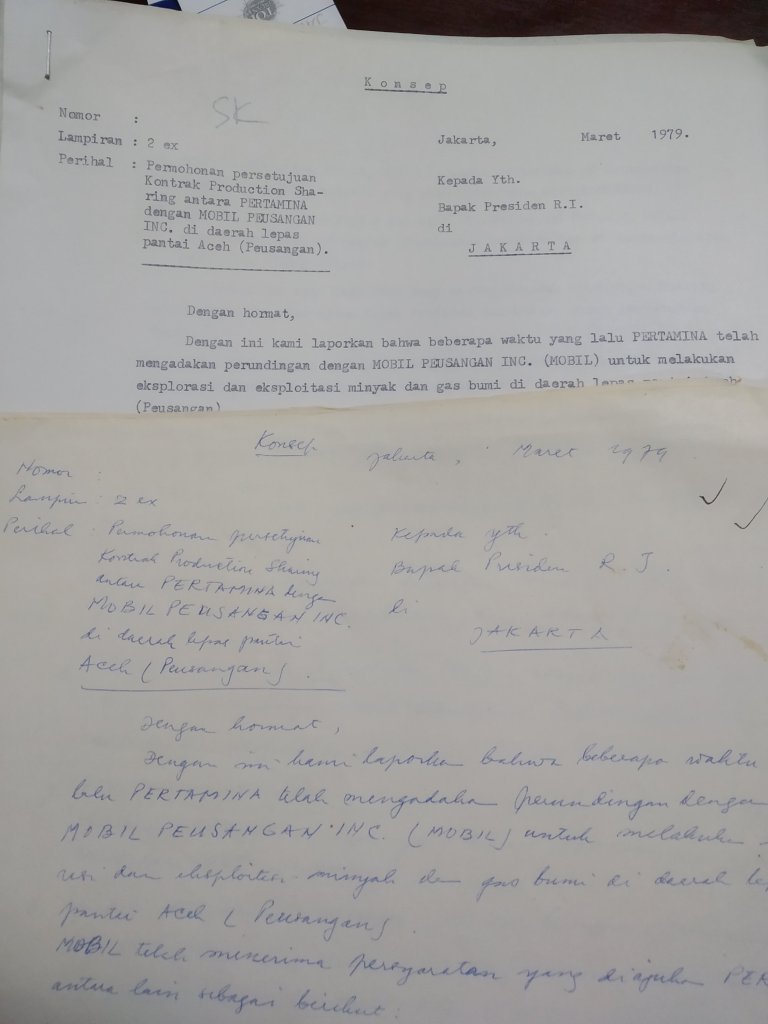 K o n s e p
SK
Nomor :
Lampiran : 2 ex
Perihal : Permohonan persetujuan
Kontrak Production Sha-
ring antara PERTAMINA
dengan MOBIL PEUSANGAN
INC. di daerah lepas
pantai Aceh (Peusangan).
Jakarta, Maret 1979.
Kepada Yth.
Bapak Presiden R.I.
di
J A K A R T A
Dengan hormat,
Dengan ini kami laporkan bahwa beberapa waktu yang lalu PERTAMINA telah
mengadakan perundingan dengan MOBIL PEUSANGAN INC. (MOBIL) untuk melakukan
eksplorasi dan eksploitasi minyak dan gas bumi di daerah lepas
(Peusangan)
Konsep
Jakarta, Maret 1979
Nomor :
Lampiran : 2 ex
Perihal : Permohonan persetujuan
Kontrak Production Sharing
antara PERTAMINA dengan
MOBIL PEUSANGAN INC.
di daerah lepas pantai
Aceh (Peusangan).
Kepada yth.
Bapak Presiden R.I.
di
JAKARTA
Dengan hormat,
Dengan ini kami laporkan bahwa beberapa waktu
lalu PERTAMINA telah mengadakan perundingan dengan
MOBIL PEUSANGAN INC. (MOBIL) untuk melakukan
rasi dan eksploitasi minyak dan gas bumi di daerah le
pantai Aceh (Peusangan).
MOBIL telah menerima persyaratan yang diajukan PER
antara lain sebagai berikut :